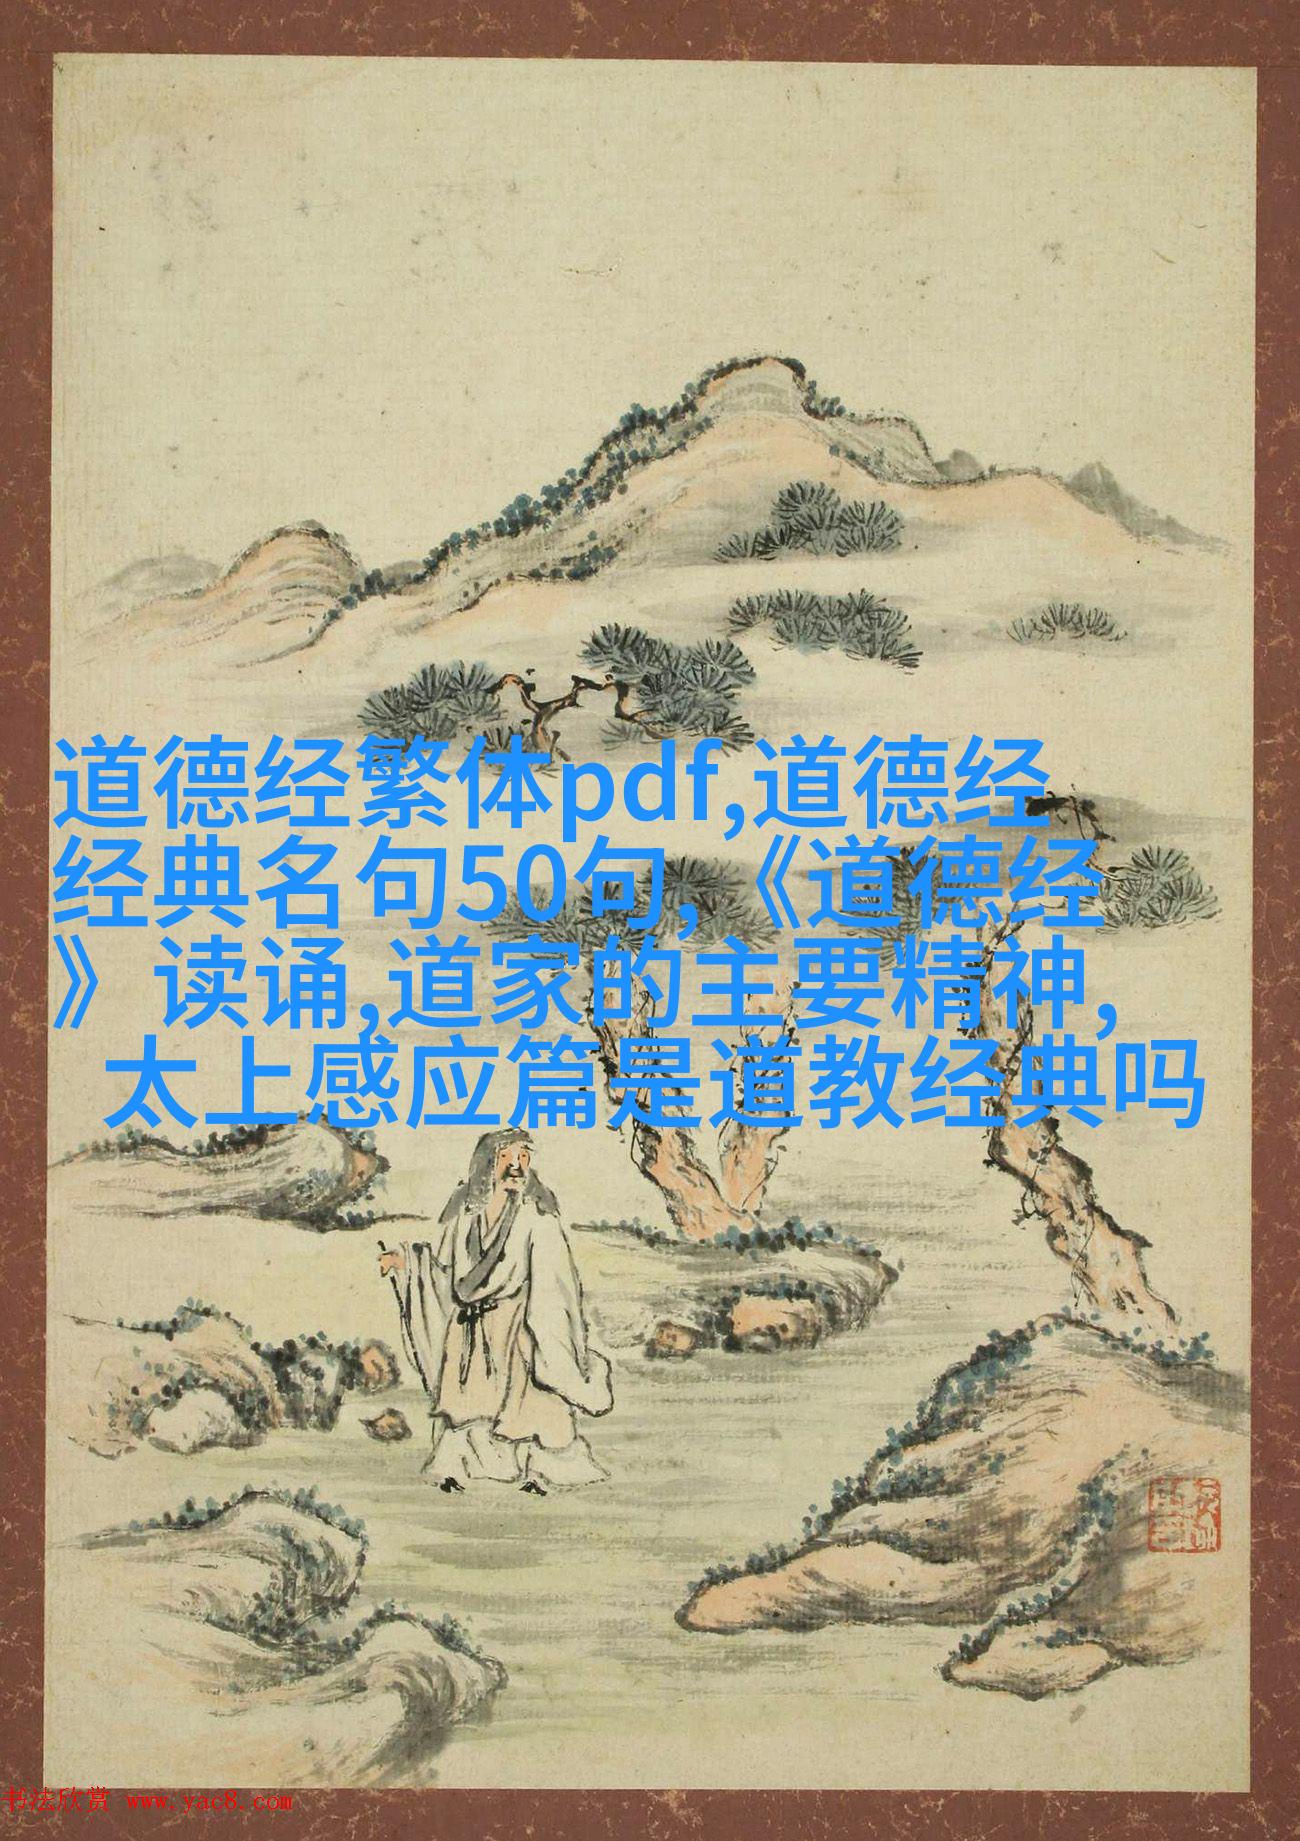 道德经繁体pdf,道德经
经典名句50句,《道德经
》读诵,道家的主要精神,
太上感应篇是道教经典吗
书法欣赏 www.yac8.com